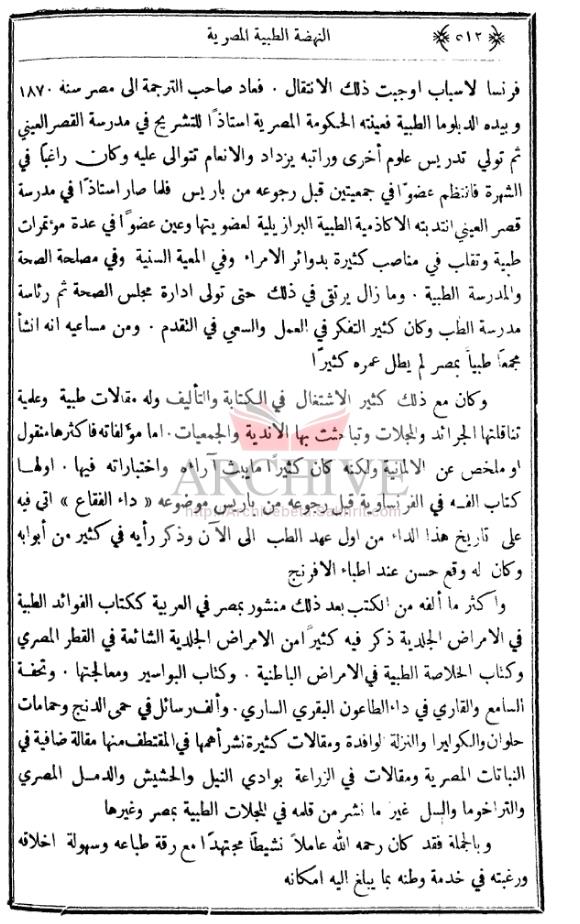 ﴿ ٥١٢ ﴾ النهضة الطبية المصرية
فرنسا لاسباب اوجبت ذلك الانتقال . فعاد صاحب الترجمة الى مصر سنة ١٨٧٠
وبيده الدبلوما الطبية فعينته الحكومة المصرية استاذًا للتشريح في مدرسة القصر العيني
ثم تولي تدريس علوم أخرى وراتبه يزداد والانعام تتوالى عليه وكان راغبًا في
الشهرة فانتظم عضوًا في جمعيتين قبل رجوعه من باريس فلما صار استاذًا في مدرسة
قصر العيني انتدبته الاكاذمية الطبية البرازيلية لعضويتها وعين عضوًا في عدة مؤتمرات
طبية وتقلب في مناصب كثيرة بدوائر الامراء وفي المعية السنية وفي مصلحة الصحة
والمدرسة الطبية . وما زال يرتقي في ذلك حتى تولى ادارة مجلس الصحة ثم رئاسة
مدرسة الطب وكان كثير التفكر في العمل والسعي في التقدم . ومن مساعيه انه انشأ
مجمعًا طبيًا بمصر لم يطل عمره كثيرًا
وكان مع ذلك كثير الاشتغال في الكتابة والتأليف وله مقالات طبية وعلمية
تناقلتها الجرائد والمجلات وتباحثت بها الاندية والجمعيات . اما مؤلفاته فاكثرها منقول
او ملخص عن الالمانية ولكنه كان كثيرًا ما يبث آراءه واختباراته فيها . اولها
كتاب الفه في الفرنساوية قبل رجوعه من باريس موضوعه « داء الفقاع » اتى فيه
على تاريخ هذا الداء من اول عهد الطب الى الآن وذكر رأيه في كثير من أبوابه
وكان له وقع حسن عند اطباء الافرنج
واكثر ما ألفه من الكتب بعد ذلك منشور بمصر في العربية ككتاب الفوائد الطبية
في الامراض الجلدية ذكر فيه كثيرًا من الامراض الجلدية الشائعة في القطر المصري
وكتاب الخلاصة الطبية في الامراض الباطنية . وكتاب البواسير ومعالجتها . وتحفة
السامع والقاري في داء الطاعون البقري الساري . وألف رسائل في حمى الدنج وحمامات
حلوان والكوليرا والنزلة الوافدة ومقالات كثيرة نشر أهمها في المقتطف منها مقالة ضافية في
النباتات المصرية ومقالات في الزراعة بوادي النيل والحشيش والدمل المصري
والتراخوما والسل غير ما نشر من قلمه في المجلات الطبية بمصر وغيرها
وبالجملة فقد كان رحمه الله عاملاً نشيطًا مجتهدًا مع رقة طباعه وسهولة اخلاقه
ورغبته في خدمة وطنه بما يبلغ اليه امكانه
ARCHIVE